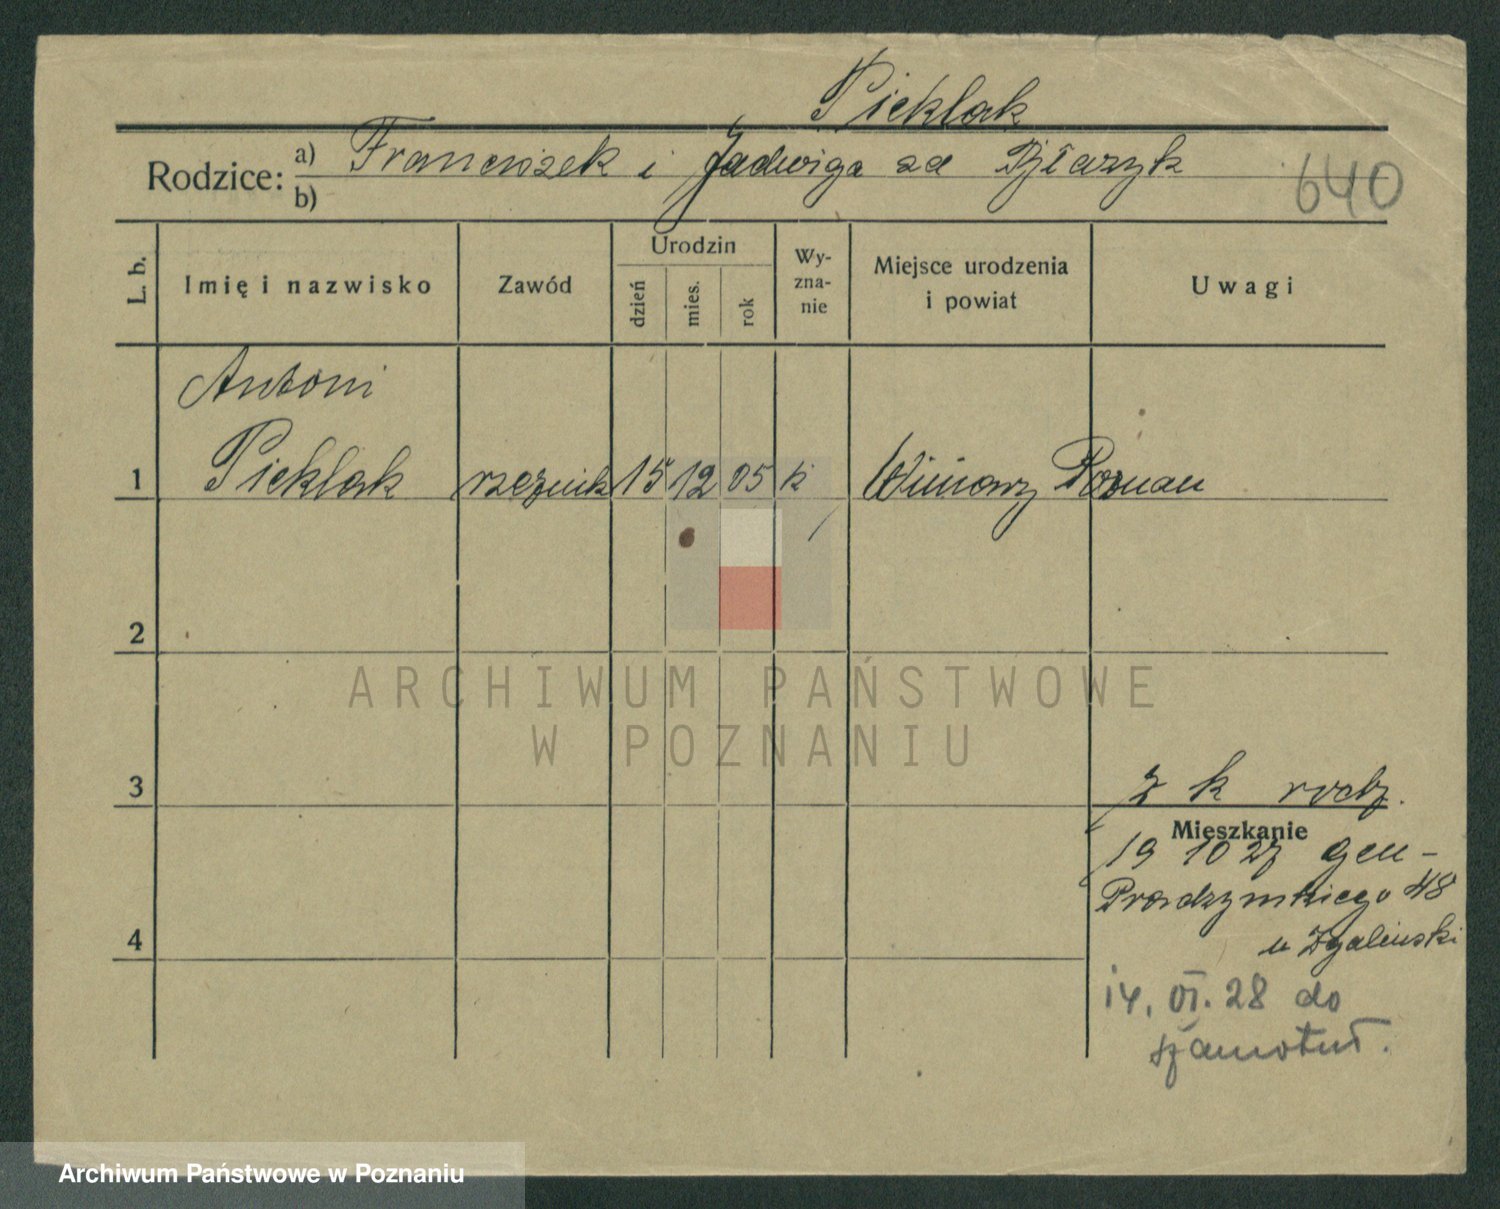 Pieklak
Rodzice: a) Franciszek i Jadwiga za
b)
640
L. b. Imię i nazwisko Zawód Urodzin dzień mies. rok Wy-zna-nie Miejsce urodzenia i powiat Uwagi
Antoni
1 Pieklak rzeźnik 15 12 05 k Winiary Poznań
2
ARCHIWUM PAŃSTWOWE
W POZNANIU
3
z k rodz.
Mieszkanie
19 10 27 gen-
Prondzyńskiego 48
4
u Zgaliński
14. VI. 28 do
Szamotuł.
Archiwum Państwowe w Poznaniu